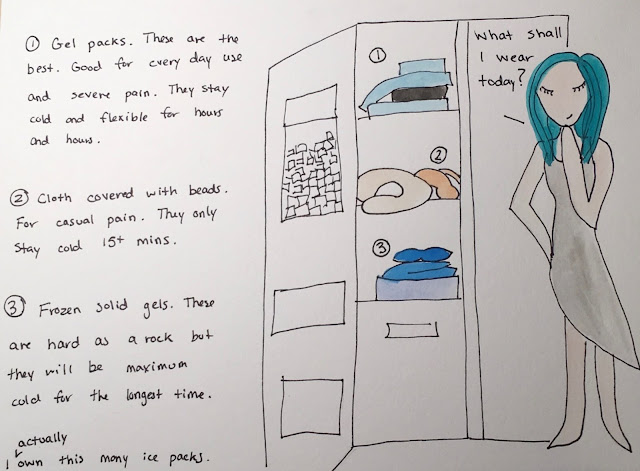 ① Gel packs. These are the
best. Good for every day use
and severe pain. They stay
cold and flexible for hours
and hours.
② Cloth covered with beads.
For casual pain. They only
stay cold 15+ mins.
③ Frozen solid gels. These
are hard as a rock but
they will be maximum
cold for the longest time.
actually
I own this many ice packs.
①
②
③
What shall
I wear
today?